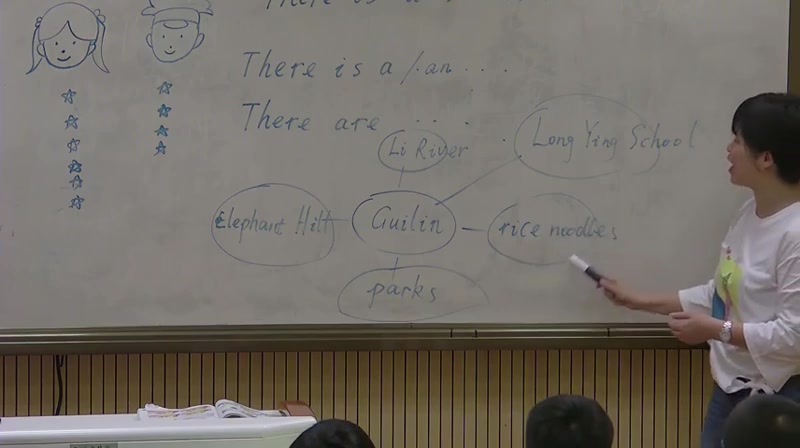 There is a
There is a / an ...
There are ...
Li River
Long Ying School
Elephant Hill
Guilin
rice noodles
parks